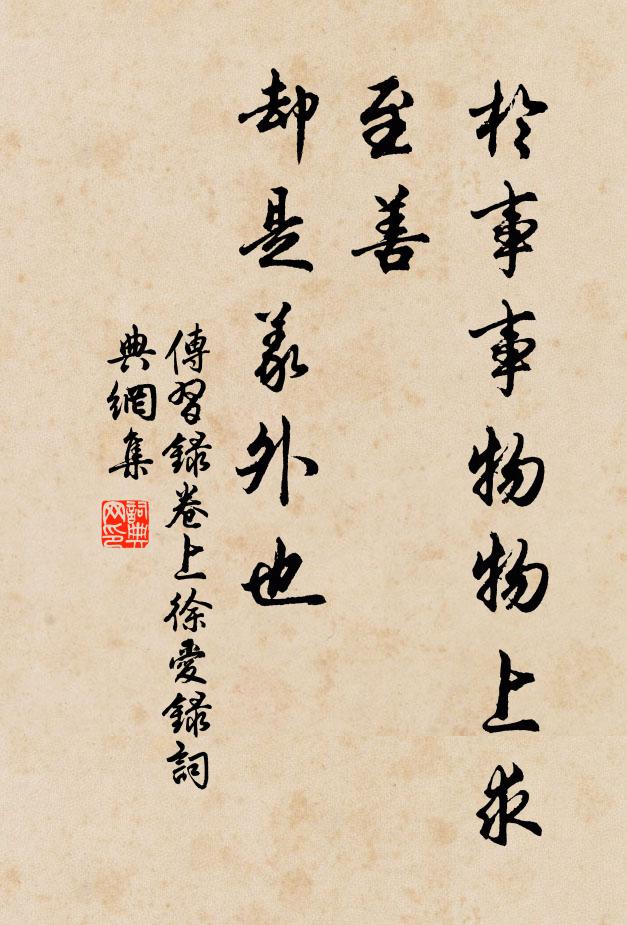 於事事物物上求
至善
却是義外也
傳習録卷上徐愛録詞
典網集
詞典
网印